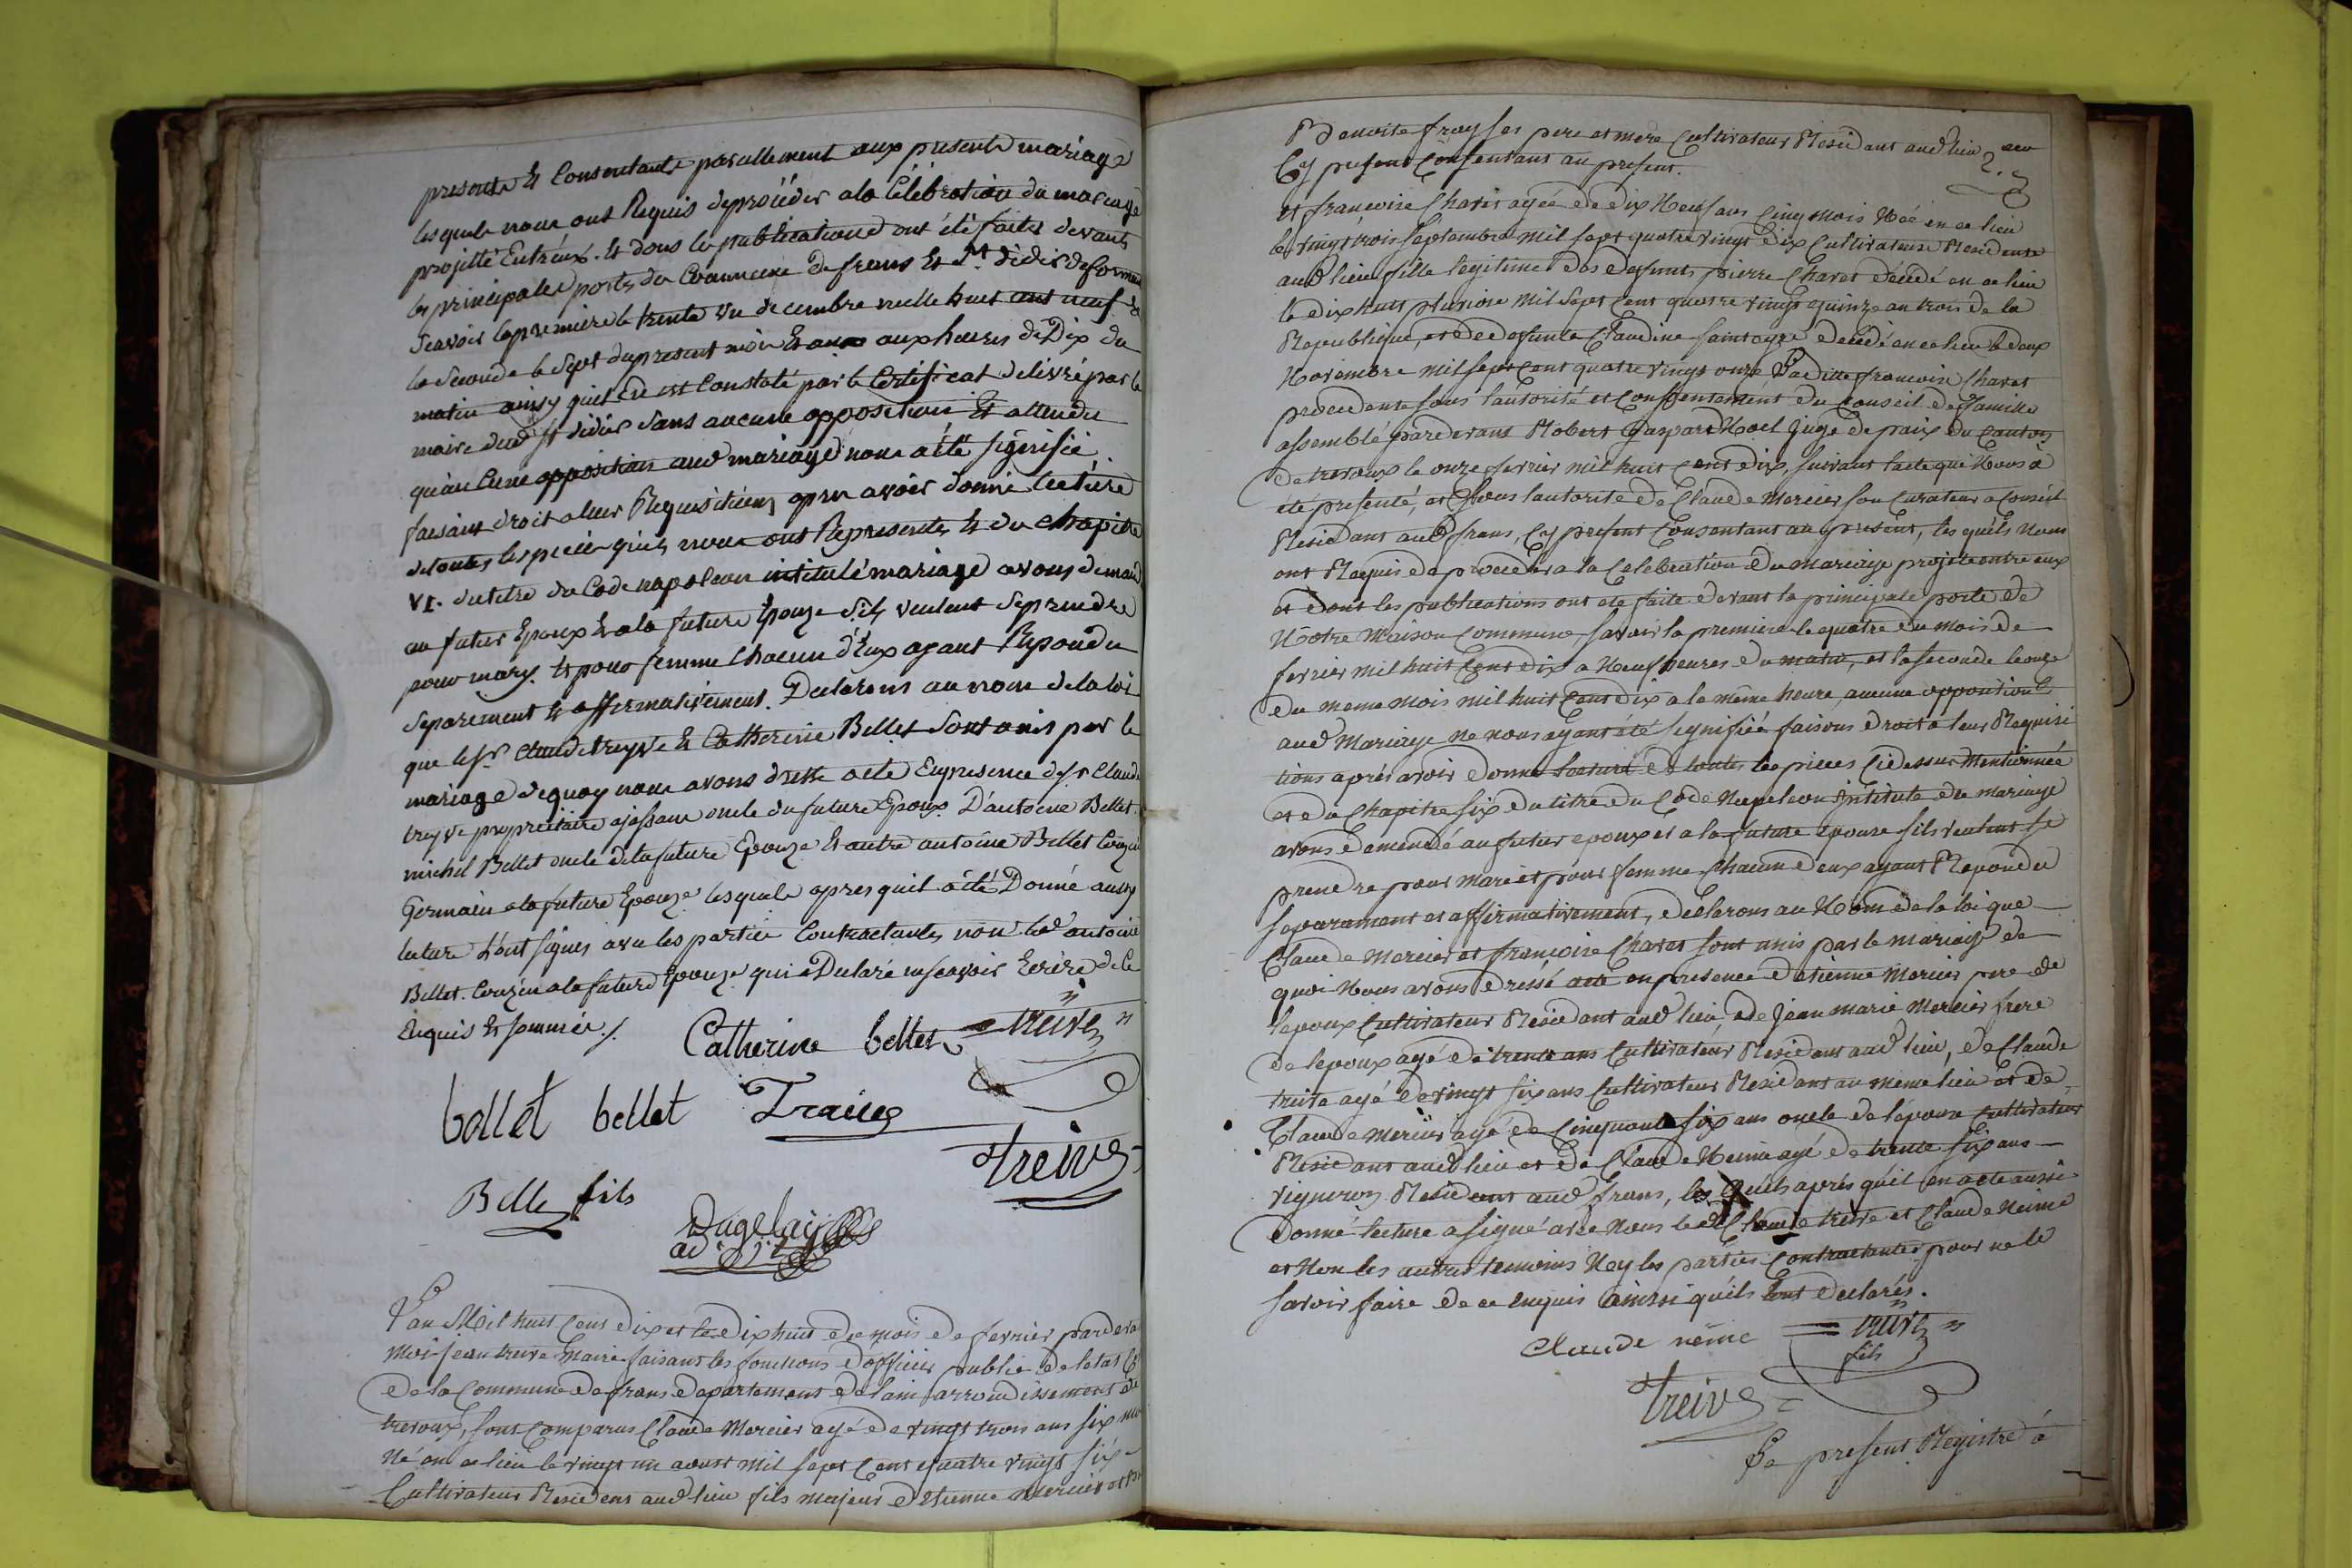 presents Et Consentants pareillement aux presents mariage
lesquels nous ont Requis de procèder a la Célébration du mariage
projetté Entréux. Et dons les publications ont été faites devant
les principales portes du Commune de frans Et St. didié de formans
Scavoir la premiere le trente un decembre mille huit cent neuf &
la Seconde le Sept du present mois Et aux heures de Dix du
matin ainsy quil En est Constaté par le Certificat delivré par le
maire dud St didier Sans aucune opposition Et attendu
qu'aucune opposition aud mariage nous a été signifié.
faisant droit a leur Requisition apres avoir donne lecture
de toutes les pieces quils nous ont Representés Et du chapitre
VI. du titre du Code napoleon intitulé mariage avons demandé
au futur Epoux Et a la future Epouze sils veulent Se prendre
pour mary. Et pour femme Chacun d'Eux ayant Repondu
Separement Et affirmativement. Declarons au nom de la loi
que le Sr. Claude treyve Et Catherine Bellet Sont unis par le
mariage de quoy nous avons dressé acte En presence de Sr Claude
treyve propriétaire a jassans oncle du future Epoux. D'antoine Bellet.
michel Bellet oncle de la future Epouze Et autre antoine Bellet Couzin
Germain a la future Epouze lesquels apres quil a été Donné aussy
lecture L'ont signés avec les parties Contractantes non led antoine
Bellet. Couzin a la future Epouze qui a Declaré ne scavoir Ecrire de Ce
Enquis Et sommés./.
Catherine bellet = treive
bellet bellet Traive
treive
Belle fils
Dugelay
ad
L'an Mil huit Cent dix et le dix huit du mois de fevrier pardeva
Moi jean treive Maire faisant les fonctions d'officier public de letat C
de la Commune de frans departement de lain arrondissement de
trevoux, sont comparus Claude Mercier agé de vingt trois ans six mo
Né en ce lieu le vingt un aoust mil sept Cent quatre vingt six
Cultivateur Residens aud lieu fils majeur d Etienne Mercier et de
Benoite fraysses pere et mere Cultivateur Residant aud lieu
Cy present Consentant au present.
et francoise Charet agée de dix Neuf ans Cinq mois Née en ce lieu
le vingt trois Septembre mil sept quatre vingt dix Cultivateure Residente
aud lieu fille legitime des defunts pierre Charet décédé en ce lieu
le dix huit pluviose mil Sept Cent quatre vingt quinze an trois de la
Republique, et de defunte Claudine decedé en ce lieu le deux
Novembre mil sept Cent quatre vingt onze Laditte francoise Charet
procedente sous l'autorité et Consentement du Conseil de famille
assemblé pardevant Robert Gaspard Noel Juge de paix du Canton
de trevoux le onze fevrier mil huit Cent dix, suivant lacte qui Nous a
été presenté, et sous lautorité de Claude Mercier son Curateur a Conseil
Residant aud frans, Cy present Consentant au present, les quels Nous
ont Requis de proceder a la Celebration du Mariage projeté entre eux
et dont les publications ont été faite devant la principale porte de
Nôtre Maison Commune, savoir la premiere le quatre du mois de
fevrier mil huit Cent dix a Neuf heures du matin, et la seconde le onze
du meme mois mil huit Cent dix a la même heure, aucune opposition
aud Mariage ne nous ayant été signifiée faisons droit a leur Requisi
tions aprés avoir donné lecture de toutes les pieces Ci dessus Mentionnée
et du Chapitre six du titre du Code Napoleon Intitulé du mariage
avons demandé au futur epoux et a la future epouse sils veulent se
prendre pour mari et pour femme Chacun deux ayant Repondu
separement et affirmativement, declarons au Nom de la loi que
Claude Mercier et francoise Charet sont unis par le mariage de
quoi Nous avons dréssé acte en presence d'etienne Mercier pere de
lepoux Cultivateur Residant aud lieu, de Jean marie Mercier frere
de lepoux agé de trente ans Cultivateur Residant aud lieu, de Claude
treive agé de vingt six ans Cultivateur Residant au même lieu et de
Claude Mercier agé de Cinquante six ans oncle de lépouse Cultivateur
Residant aud lieu et de Claude Neime agé de trente six ans
vigneron Residant aud frans, les Quels aprés qu'il en a été aussi
donné lecture a signé avec Nous led Claude treive et Claude Neime
et Non les autres temoins Ny les parties Contractantes pour ne le
savoir faire de ce enquis ainssi quils lont declarés.
claude nême = treive
fils
treive
Le present Registre à